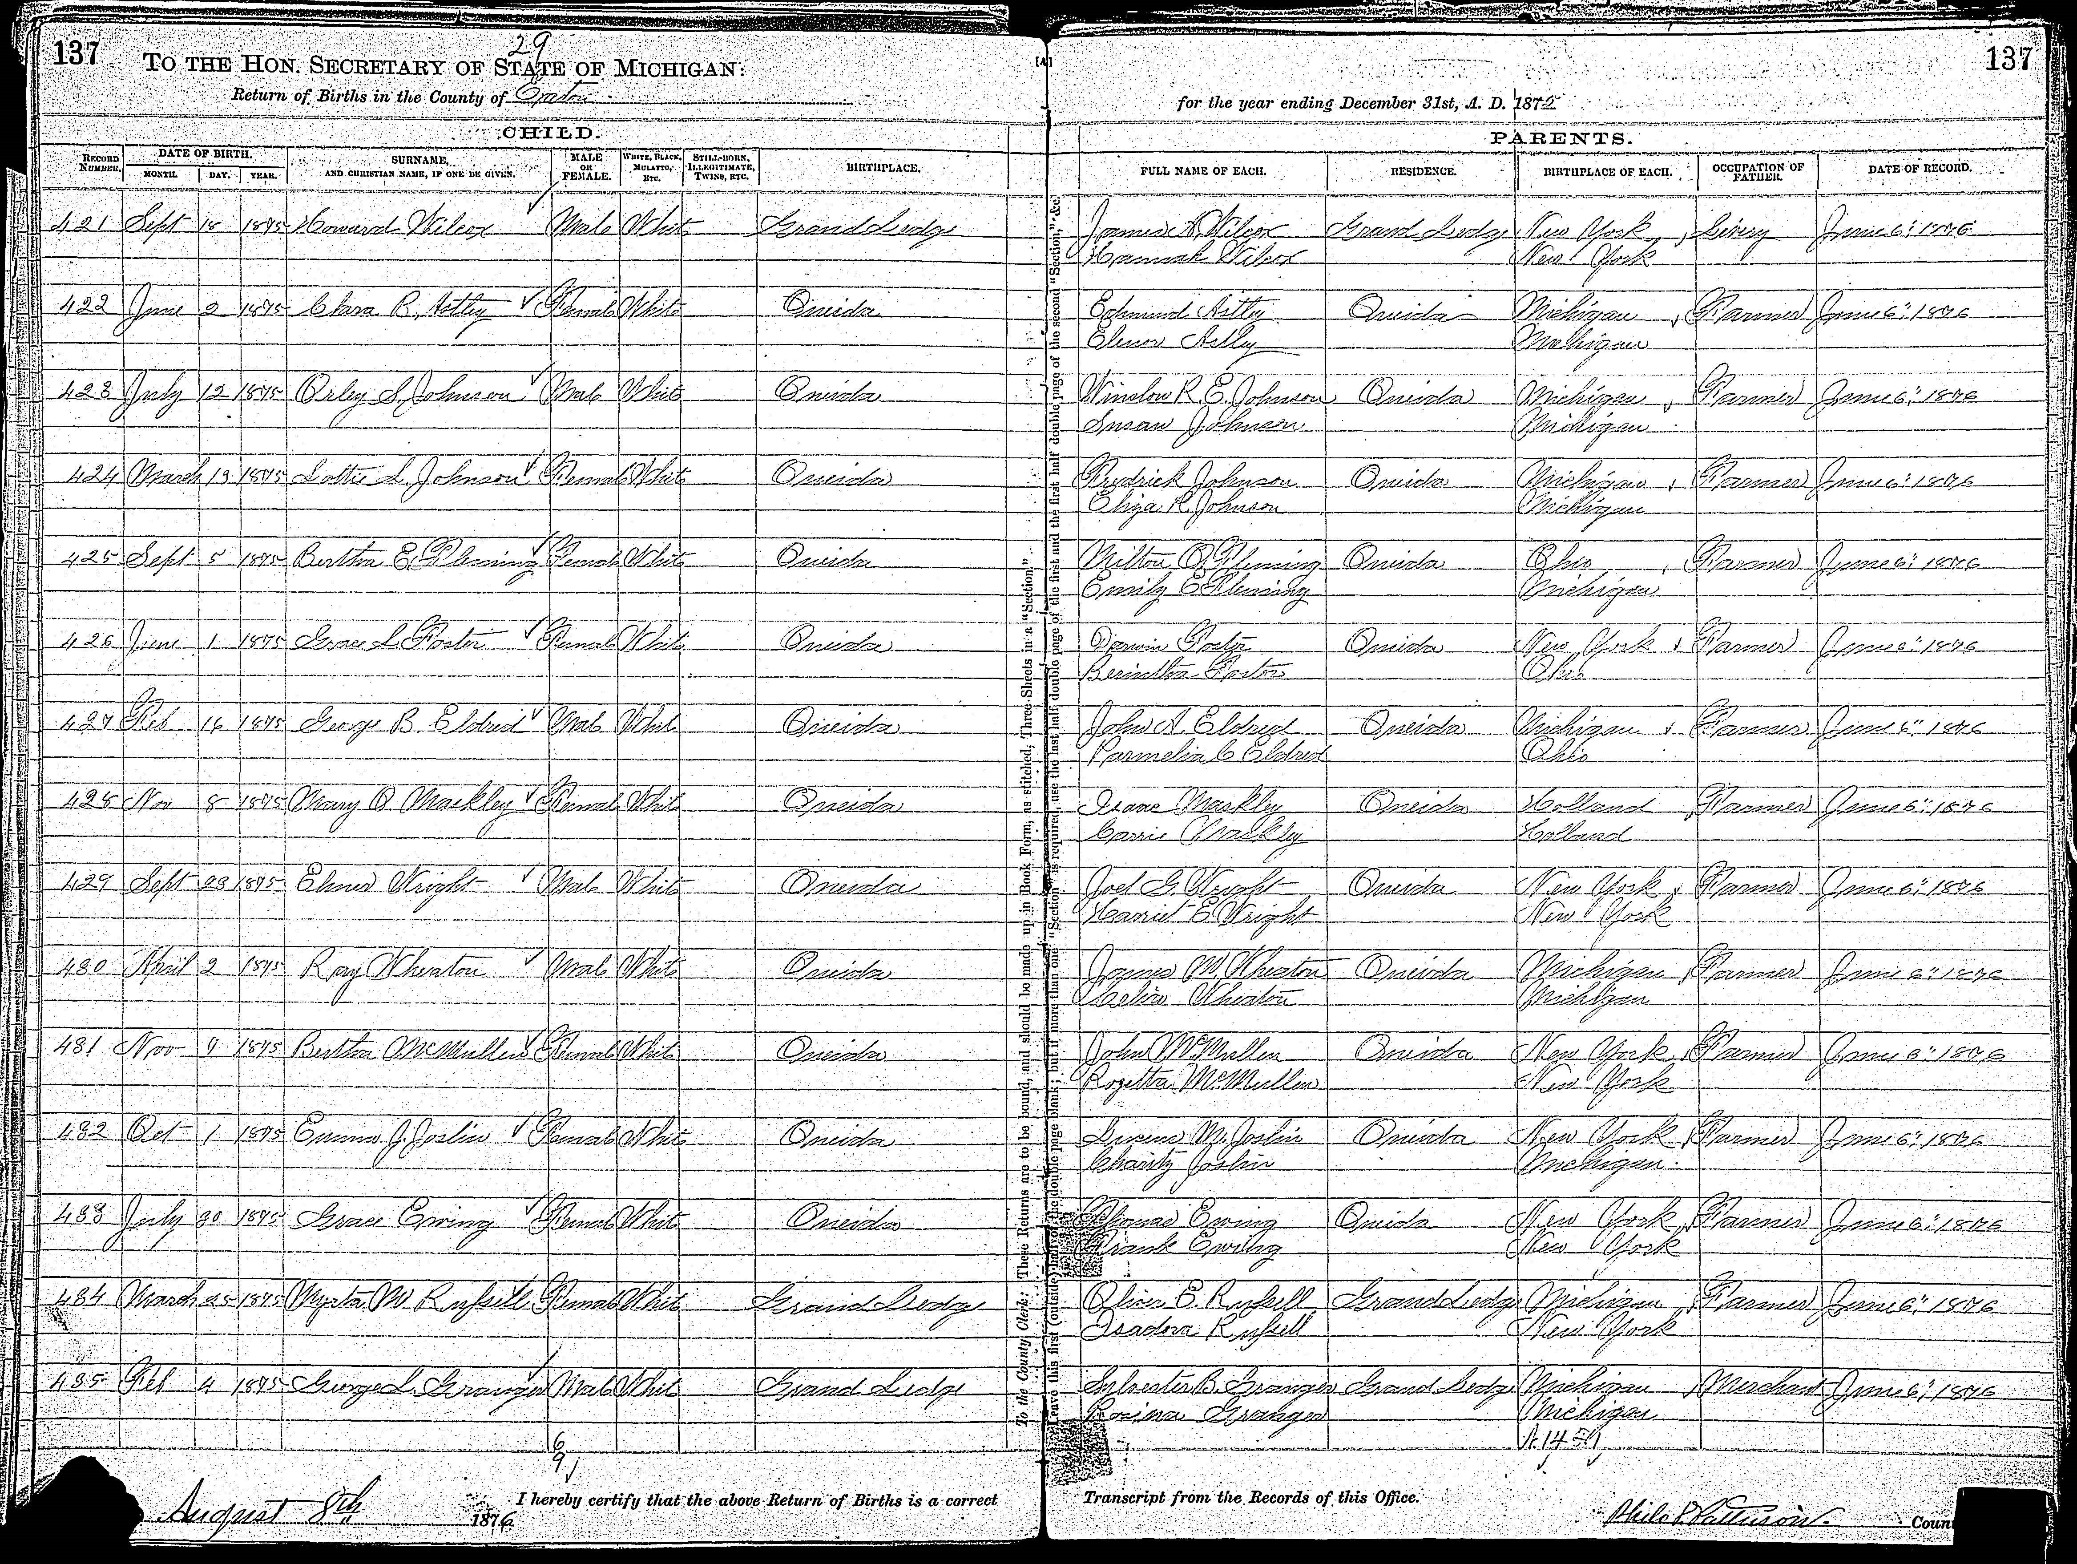 137
29
TO THE HON. SECRETARY OF STATE OF MICHIGAN:
Return of Births in the County of Eaton
CHILD.
RECORD NUMBER. DATE OF BIRTH. MONTH. DAY. YEAR. SURNAME, AND CHRISTIAN NAME, IF ONE BE GIVEN. MALE OR FEMALE. WHITE, BLACK, MULATTO, ETC. STILL-BORN, ILLEGITIMATE, TWINS, ETC. BIRTHPLACE.
421 Sept 18 1875 Howard Wilcox Male White Grand Ledge
422 June 2 1875 Clara R. Astley Female White Oneida
423 July 12 1875 Orley S. Johnson Male White Oneida
424 March 13 1875 Lottie L. Johnson Female White Oneida
425 Sept 5 1875 Bertha E. Fleming Female White Oneida
426 June 1 1875 Grace L. Foster Female White Oneida
427 Feb 16 1875 George B. Eldred Male White Oneida
428 Nov 8 1875 Mary O Mackley Female White Oneida
429 Sept 23 1875 Elmer Wright Male White Oneida
430 April 2 1875 Ray Wheaton Male White Oneida
431 Nov 9 1875 Bertha McMullen Female White Oneida
432 Oct 1 1875 Emma J. Joslin Female White Oneida
433 July 30 1875 Grace Ewing Female White Oneida
434 March 25 1875 Myrta M. Russell Female White Grand Ledge
435 Feb 4 1875 George L. Granger Male White Grand Ledge
6
9
August 8th 1876 I hereby certify that the above Return of Births is a correct
To the County Clerk: These Returns are to be bound, and should be made up in Book Form, as stitched; Three Sheets in a "Section."
137
for the year ending December 31st, A. D. 1875
PARENTS.
FULL NAME OF EACH. RESIDENCE. BIRTHPLACE OF EACH. OCCUPATION OF FATHER. DATE OF RECORD.
James A. Wilcox Grand Ledge New York Livery June 6" 1876
Hannah Wilcox New York
Edmund Astley Oneida Michigan Farmer June 6" 1876
Elenor Astley Michigan
Winslow R. E. Johnson Oneida Michigan Farmer June 6" 1876
Susan Johnson Michigan
Fredrick Johnson Oneida Michigan Farmer June 6" 1876
Eliza R. Johnson Michigan
Milton O. Fleming Oneida Ohio Farmer June 6" 1876
Emily E Fleming Michigan
Darwin Foster Oneida New York Farmer June 6" 1876
Berintha Foster Ohio
John A. Eldred Oneida Michigan Farmer June 6" 1876
Parmelia C Eldred Ohio
Isaac Mackley Oneida Holland Farmer June 6" 1876
Carrie Mackley Holland
Joel G. Wright Oneida New York Farmer June 6" 1876
Harriet E. Wright New York
James M. Wheaton Oneida Michigan Farmer June 6" 1876
Wheaton Michigan
John McMullen Oneida New York Farmer June 6" 1876
Rozetta McMullen New York
M. Joslin Oneida New York Farmer June 6" 1876
Charity Joslin Michigan
Thomas Ewing Oneida New York Farmer June 6" 1876
Frank Ewing New York
Oliver E. Russell Grand Ledge Michigan Farmer June 6" 1876
Isadora Russell New York
Sylvester B. Granger Grand Ledge Michigan Merchant June 6" 1876
Rosina Granger Michigan
Transcript from the Records of this Office.
Philo Pattison